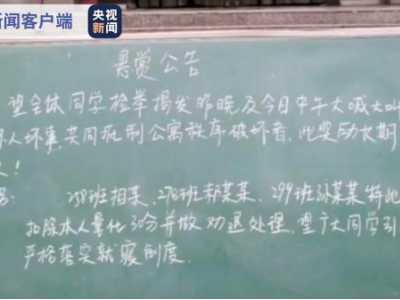 新闻客户端
央视新闻
悬赏公告
望全体同学检举揭发昨晚及今日中午大喊大叫
人坏事,共同抵制公寓秩序破坏者,此奖励长期
!
:258班相某,278班郝某某,299班孙某某特此
扣除本人量化30分并做劝退处理,望广大同学引
严格落实就寝制度.